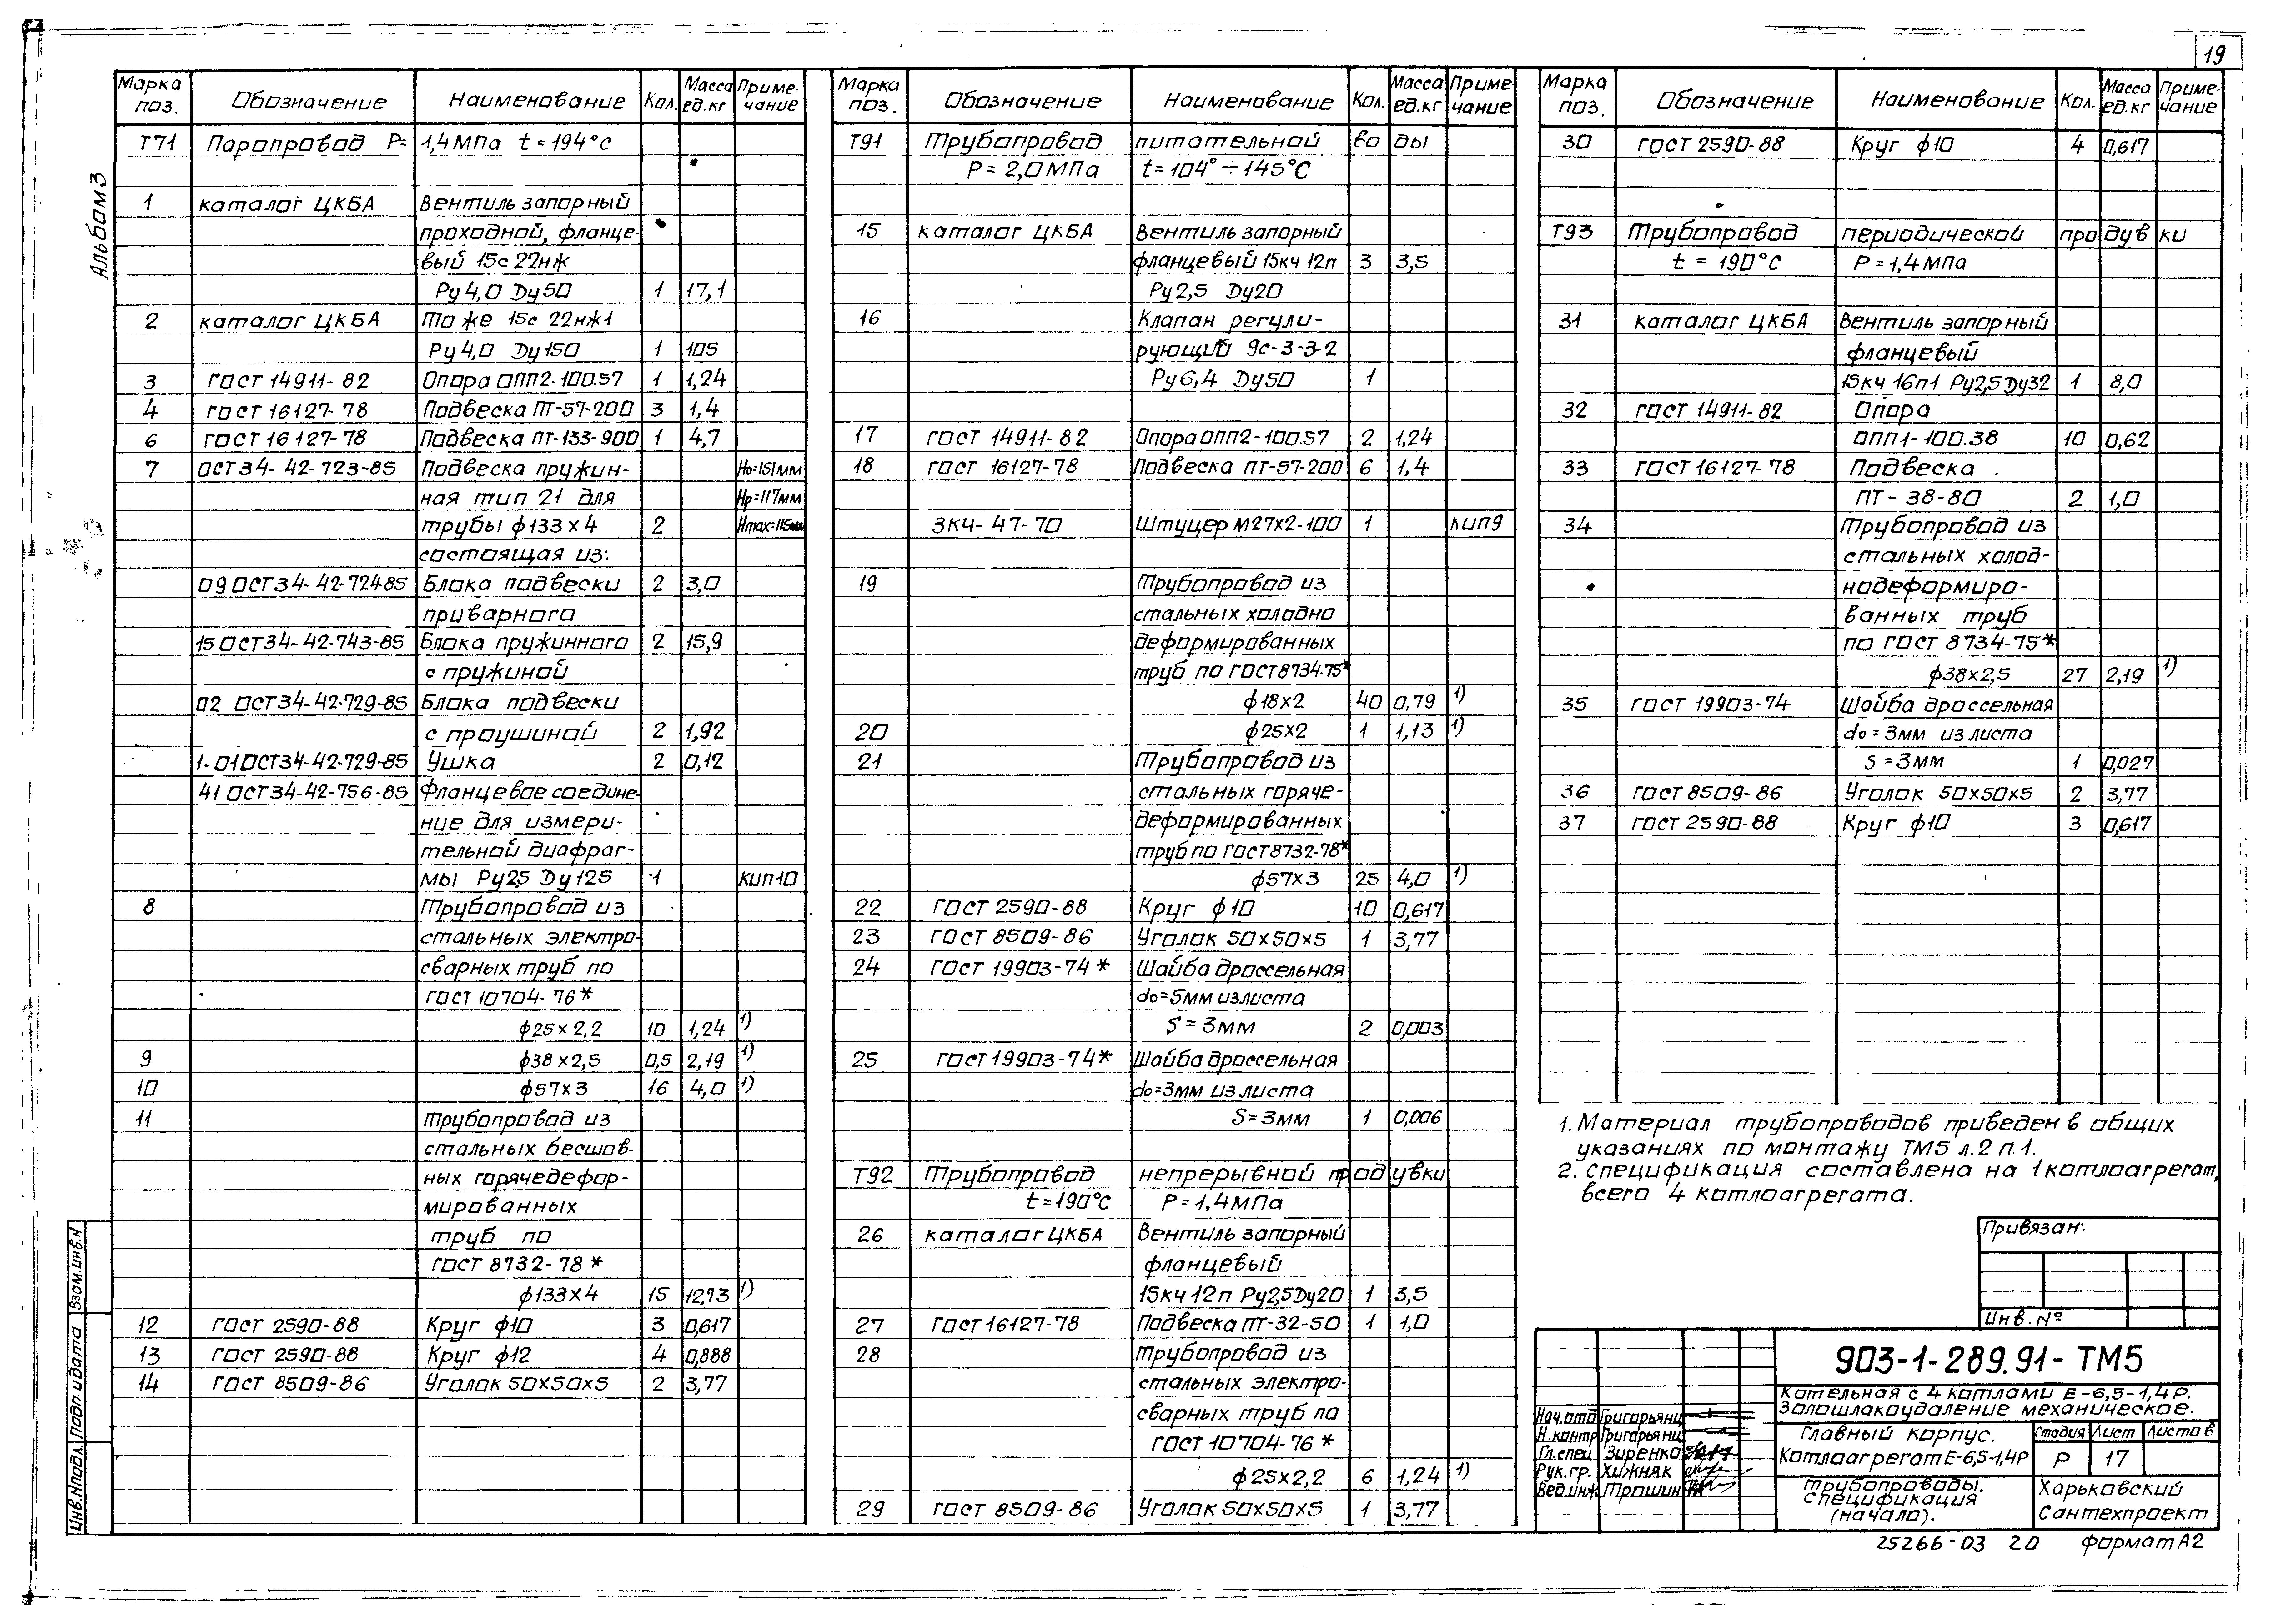 19
Альбом 3
Марка поз. Обозначение Наименование Кол. Масса ед.кг Приме-чание
Т71 Паропровод Р= 1,4 МПа t = 194°С
1 каталог ЦКБА Вентиль запорный
проходной, фланце-
вый 15с 22нж
Ру4,0 Ду50 1 17,1
2 каталог ЦКБА То же 15с 22нж1
Ру4,0 Ду150 1 105
3 ГОСТ 14911-82 Опора ОПП2-100.57 1 1,24
4 ГОСТ 16127-78 Подвеска ПТ-57-200 3 1,4
6 ГОСТ 16127-78 Подвеска ПТ-133-900 1 4,7
7 ОСТ 34-42-723-85 Подвеска пружин- Но=151мм
ная тип 21 для Нр=117мм
трубы ф133х4 2 Нmax=115мм
состоящая из:
09 ОСТ34-42-724-85 Блока подвески 2 3,0
приварного
15 ОСТ34-42-743-85 Блока пружинного 2 15,9
с пружиной
02 ОСТ34-42-729-85 Блока подвески
с проушиной 2 1,92
1-01 ОСТ34-42-729-85 Ушка 2 0,12
41 ОСТ34-42-756-85 Фланцевое соедине-
ние для измери-
тельной диафраг-
мы Ру2,5 Ду125 1 КИП10
8 Трубопровод из
стальных электро-
сварных труб по
ГОСТ 10704-76*
ф25х2,2 10 1,24 1)
9 ф38х2,5 0,5 2,19 1)
10 ф57х3 16 4,0 1)
11 Трубопровод из
стальных бесшов-
ных горячедефор-
мированных
труб по
ГОСТ 8732-78*
ф133х4 15 12,73 1)
12 ГОСТ 2590-88 Круг ф10 3 0,617
13 ГОСТ 2590-88 Круг ф12 4 0,888
14 ГОСТ 8509-86 Уголок 50х50х5 2 3,77
Марка поз. Обозначение Наименование Кол. Масса ед.кг Приме-чание
Т91 Трубопровод питательной воды
Р = 2,0 МПа t = 104° ÷ 145°С
15 каталог ЦКБА Вентиль запорный
фланцевый 15кч 12п 3 3,5
Ру2,5 Ду20
16 Клапан регули-
рующий 9с-3-3-2
Ру6,4 Ду50 1
17 ГОСТ 14911-82 Опора ОПП2-100.57 2 1,24
18 ГОСТ 16127-78 Подвеска ПТ-57-200 6 1,4
ЗКЧ-47-70 Штуцер М27х2-100 1 КИП9
19 Трубопровод из
стальных холодно
деформированных
труб по ГОСТ8734-75*
ф18х2 40 0,79 1)
20 ф25х2 1 1,13 1)
21 Трубопровод из
стальных горяче-
деформированных
труб по ГОСТ8732-78*
ф57х3 25 4,0 1)
22 ГОСТ 2590-88 Круг ф10 10 0,617
23 ГОСТ 8509-86 Уголок 50х50х5 1 3,77
24 ГОСТ 19903-74* Шайба дроссельная
do=5мм из листа
S = 3мм 2 0,003
25 ГОСТ 19903-74* Шайба дроссельная
do=3мм из листа
S = 3мм 1 0,006
Т92 Трубопровод непрерывной продувки
t = 190°С Р = 1,4 МПа
26 каталог ЦКБА Вентиль запорный
фланцевый
15кч 12п Ру2,5Ду20 1 3,5
27 ГОСТ 16127-78 Подвеска ПТ-32-50 1 1,0
28 Трубопровод из
стальных электро-
сварных труб по
ГОСТ 10704-76*
ф25х2,2 6 1,24 1)
29 ГОСТ 8509-86 Уголок 50х50х5 1 3,77
Марка поз. Обозначение Наименование Кол. Масса ед.кг Приме-чание
30 ГОСТ 2590-88 Круг ф10 4 0,617
Т93 Трубопровод периодической продувки
t = 190°С Р = 1,4 МПа
31 каталог ЦКБА Вентиль запорный
фланцевый
15кч 16п1 Ру2,5Ду32 1 8,0
32 ГОСТ 14911-82 Опора
ОПП1-100.38 10 0,62
33 ГОСТ 16127-78 Подвеска
ПТ-38-80 2 1,0
34 Трубопровод из
стальных холод-
нодеформиро-
ванных труб
по ГОСТ 8734-75*
ф38х2,5 27 2,19 1)
35 ГОСТ 19903-74 Шайба дроссельная
do = 3мм из листа
S = 3мм 1 0,027
36 ГОСТ 8509-86 Уголок 50х50х5 2 3,77
37 ГОСТ 2590-88 Круг ф10 3 0,617
1. Материал трубопроводов приведен в общих
указаниях по монтажу ТМ5 л.2 п.1.
2. Спецификация составлена на 1 котлоагрегат,
всего 4 котлоагрегата.
Привязан:
Инв. №
903-1-289.91-ТМ5
Котельная с 4 котлами Е-6,5-1,4Р.
Золошлакоудаление механическое.
Нач.отд Григорьянц
Н.контр Григорьянц
Гл.спец Зиренко
Рук.гр. Хижняк
Вед.инж Трошин
Главный корпус.
Котлоагрегат Е-6,5-1,4Р
Стадия Лист Листов
Р 17
Трубопроводы.
Спецификация
(начало).
Харьковский
Сантехпроект
25266-03 20 формат А2
Взам.инв.№
Подп. и дата
Инв.№подл.